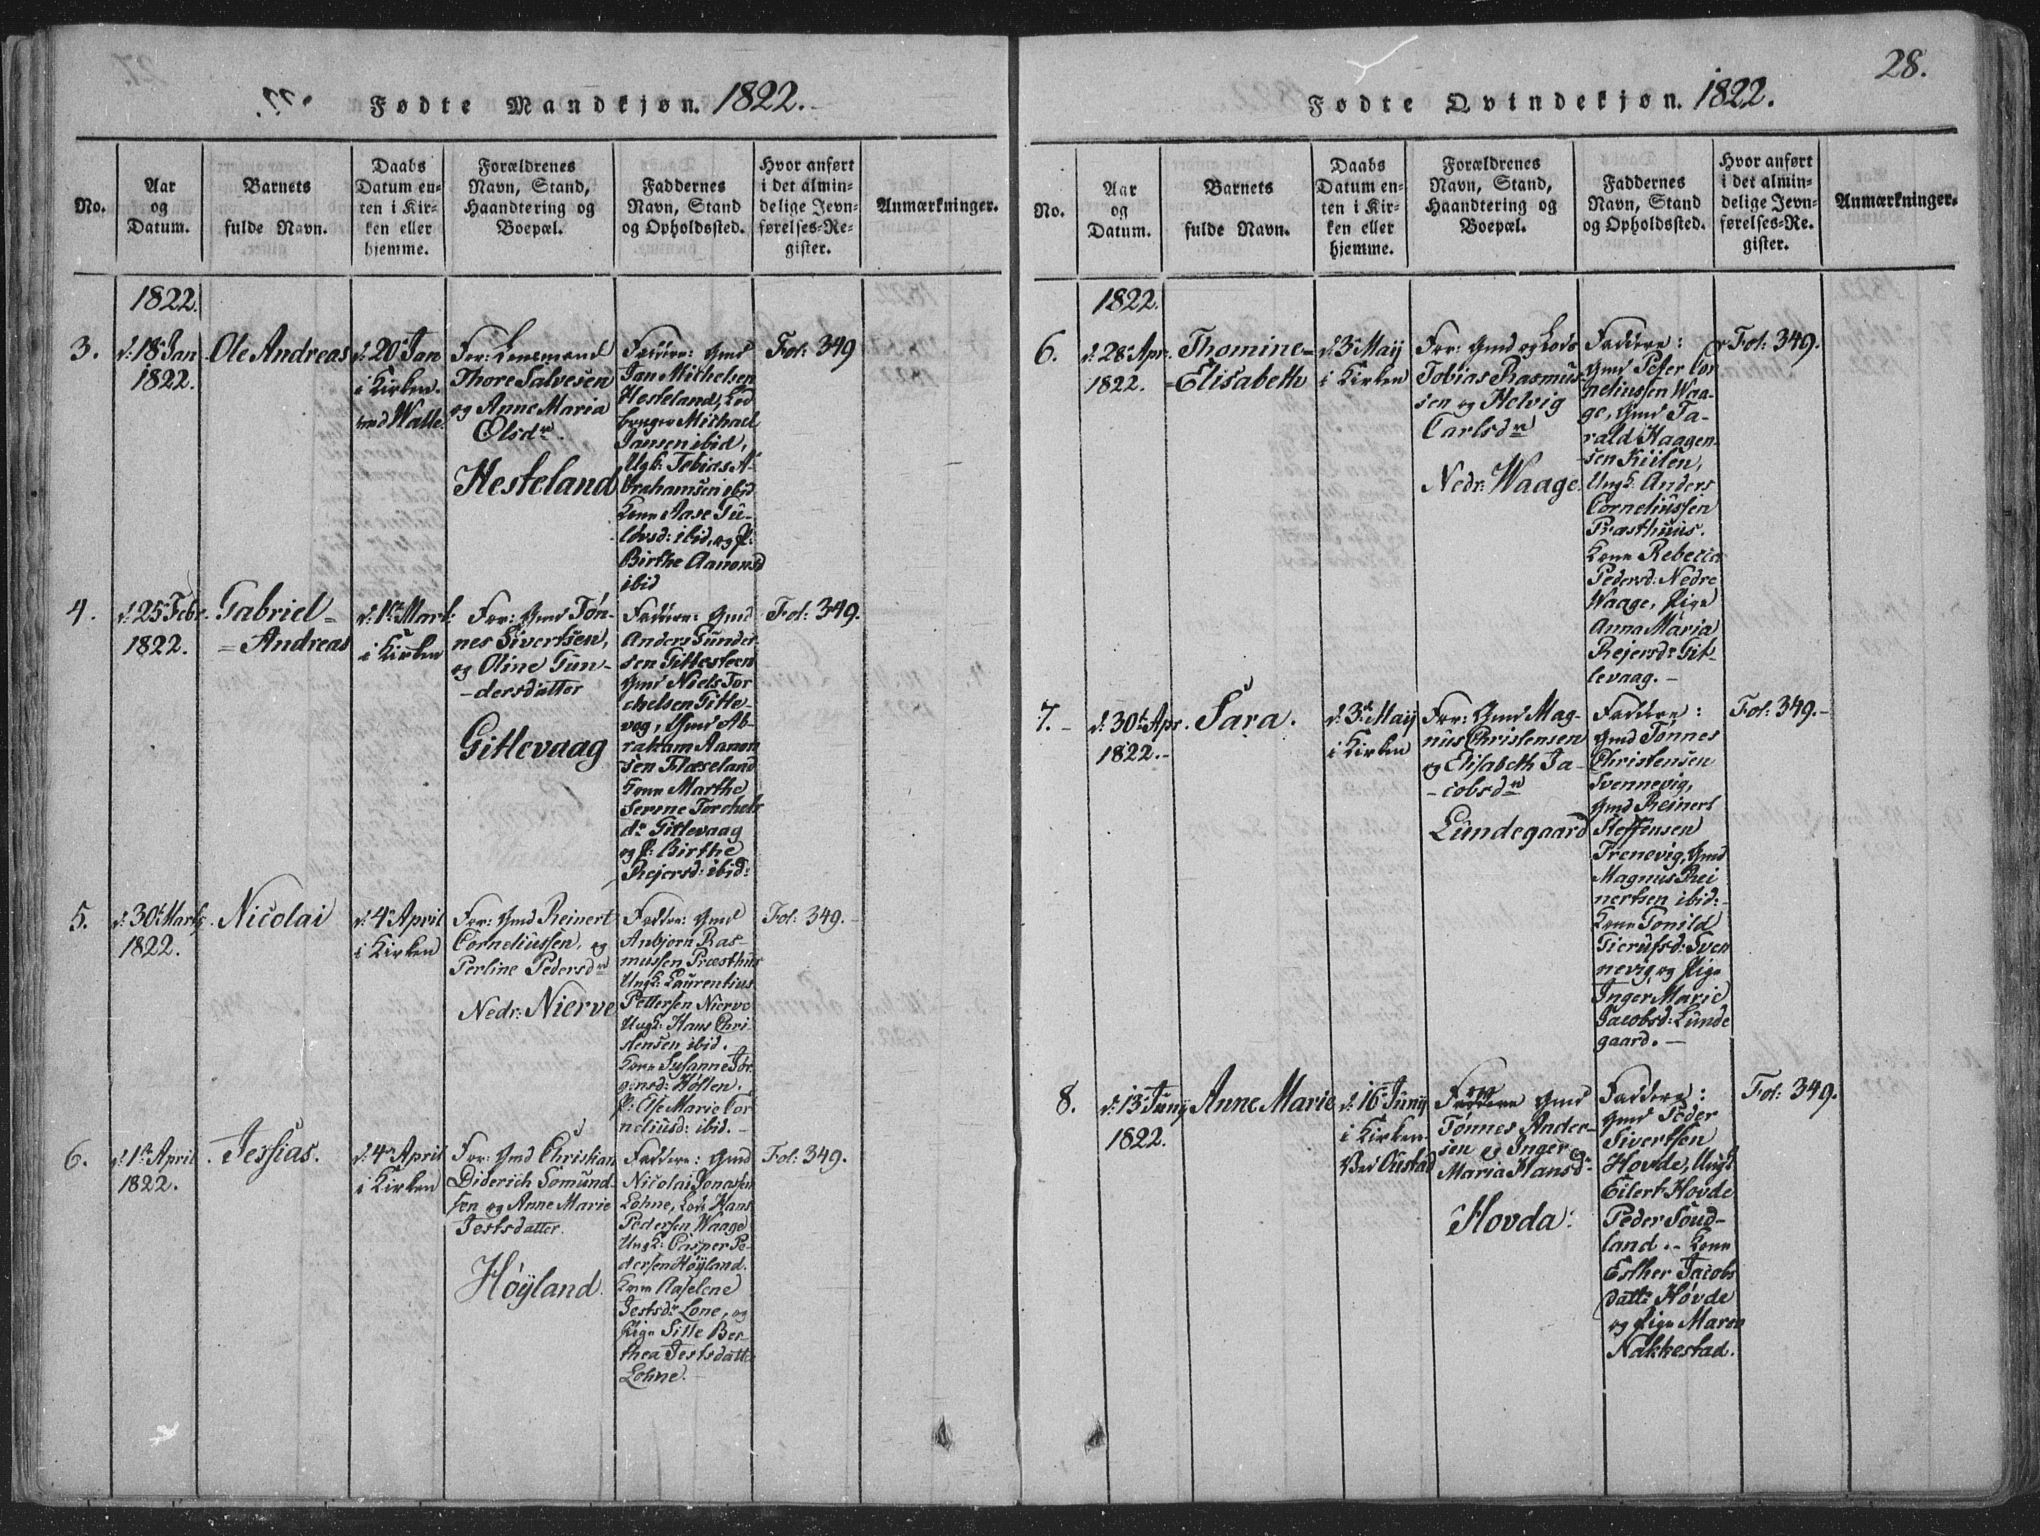 Fødte Mandkjøn. 1822.
No.
Aar
og
Datum.
Barnets
fulde Navn.
Daabs
Datum en-
ten i Kir-
ken eller
hjemme.
Forældrenes
Navn, Stand,
Haandtering og
Boepæl.
Faddernes
Navn, Stand
og Opholdssted.
Hvor anført
i det almin-
delige Jevn-
førelses-Re-
gister.
Anmærkninger.
1822.
3.
d: 18 Jan
1822.
Ole Andreas
d: 20 Jan
i Kirken
ved Walle
For: Lensmand
Thore Salvesen
og Anne Maria
Olsdr.
Hesteland
Faddere: Gmd
Jan Michelsen
Hesteland, Led
bruger Michael
Jansen ibid,
Ungk: Tobias A-
brahamsen ibid
Kone Aase Gu-
lovsd: ibid, og P:
Birthe Aanonsd
ibid
Fol: 349
4.
d: 25 Febr.
1822.
Gabriel=
=Andreas
d: 1te Mart:
i Kirken
For: Gmd Tøn-
nes Sivertsen,
og Oline Gun-
-dersdatter
Gitlevaag
Faddere: Gmd
Anders Gunder-
sen Gittesteen
Gmd Niels Tor
chelsen Gitle-
vog, Gmd Ab-
raham Aanon
sen Flæseland
Kone Marthe
Serine Torchels
dr Gitlevaag
og P: Birthe
Rejersd: ibid:
Fol: 349.
5.
d: 30t Marts
1822.
Nicolai
d: 4de April
i Kirken
For: Gmd Reinert
Corneliussen, og
Perline Pedersdr
Nedr: Nierve
Fadder: Gmd
Anbjørn Ras-
mussen Præsthus
Ungk: Laurentius
Pettersen Nierve
Ungk: Hans Chri-
stensen ibid.
Kone Susanne Jør
gensd: Holten.
P: Else Marie Cor
neliusd: ibid.-
Fol: 349.
6.
d: 1te April
1822.
Jessias.
d: 4de April
i Kirken
For: Gmd Christian
Diderich Somund-
sen og Anne Marie
Jestsdatter.
Høyland.
Faddere: Gmd
Nicolai Jonassen
Lohne, Lods Hans
Pedersen Waage
Ungk: Casper Pe-
dersen Høyland.
Kone Aaselene
Jestsdr Lone, og
Pige Sille Ber-
thea Jestsdatter
Lohne.
Fol: 349.
28.
Fødte Qvindekjøn. 1822.
No.
Aar
og
Datum.
Barnets
fulde Navn.
Daabs
Datum en-
ten i Kir-
ken eller
hjemme.
Forældrenes
Navn, Stand,
Haandtering og
Boepæl.
Faddernes
Navn, Stand
og Opholdssted.
Hvor anført
i det almin-
delige Jevn-
førelses-Re-
gister.
Anmærkninger.
1822.
6.
d: 28 Apr.
1822.
Thomine=
=Elisabeth
d: 3 Maij
i Kirken
For: Gmd og Lods
Tobias Rasmus-
sen og Helvig
Carlsdr
Nedr: Waage.
Faddere:
Gmd Peter Cor
neliussen Waa-
ge, Gmd Ta-
rald Haagen-
sen Kiilen,
Ungk: Anders
Corneliussen
Præsthuus.
Kone Rebecca
Pedersd: Nedre
Waage, Pige
Anna Maria
Rejersdr Git-
levaag.-
Fol: 349.
7.-
d: 30te Apr.
1822.-
Sara.
d: 3de Maij
i Kirken
For: Gmd Mag-
nus Christensen
og Elisabeth Ja-
-cobsdr
Lundegaard
Faddere:
Gmd Tønnes
Christensen
Svennevig,
Gmd Reinert
Steffensen
Trenevig, Gmd
Magnus Rei
nertsen ibid:-
Kone Tonild
Gierufsd: Sven
nevig, og Pige
Inger Marie
Jacobsd: Lunde
gaard.-
Fol: 349.-
8.
d: 13 Junij
1822.
Anne Marie
d: 16 Junij
i Kirken
Ved Oustad
For Gmd
Tønnes Ander-
sen og Inger
Maria Hansdr
Hovda.
Faddere:
Gmd Peder
Sivertsen
Hovde, Ungk
Eilert Hovde
Peder Soud-
land.- Kone
Esther Jacobs
datter Hovde
og Pige Maren
Nakkestad.
Fol: 349.